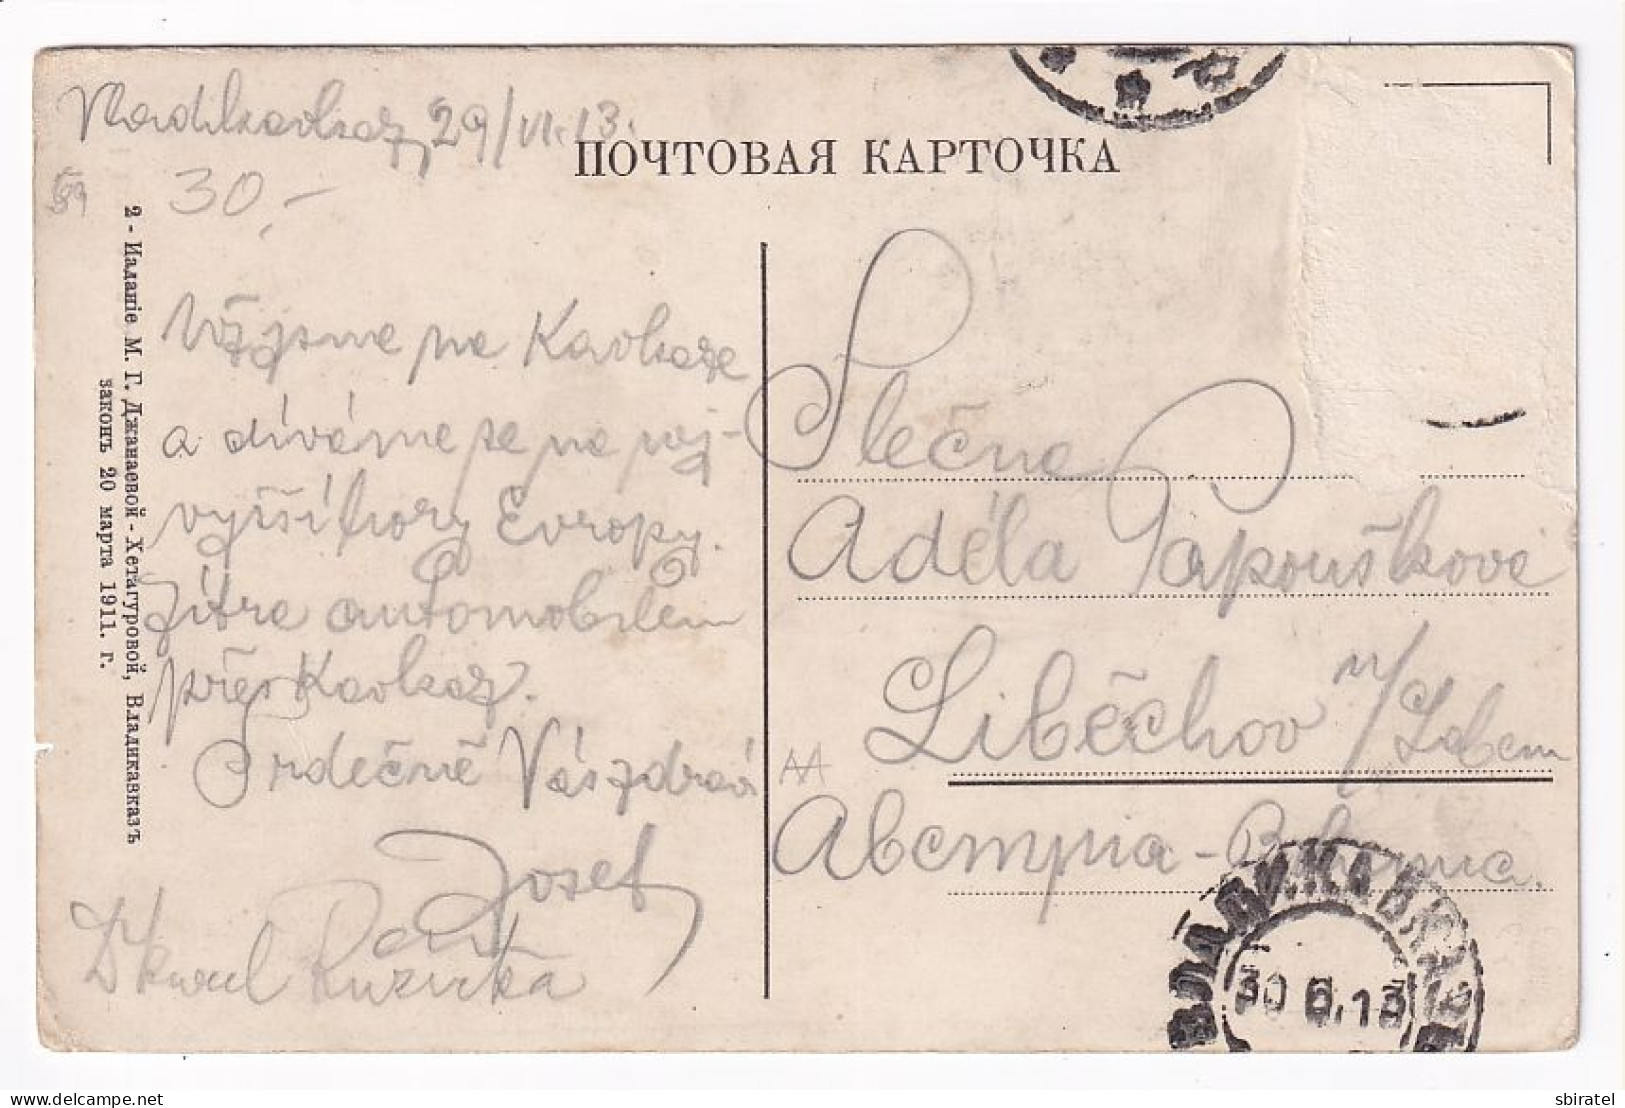 Vladikavkaz, 29/VI. 13.
ПОЧТОВАЯ КАРТОЧКА
30,-
2 - Изданіе М. Г. Джанаевой - Хетагуровой, Владикавказъ
законъ 20 марта 1911. г.
Již jsme na Kavkaze
a díváme se na nej-
vyšší hory Evropy.
Zítra automobilem
přes Kavkaz.
Srdečně Vás zdraví
Josef
Karel Růzička
Slečna
Adéla Papoušková
Liběchov n/Labem
Австрія - Bohemia.
ВЛАДИКАВКАЗ
30 6.13
sbiratel